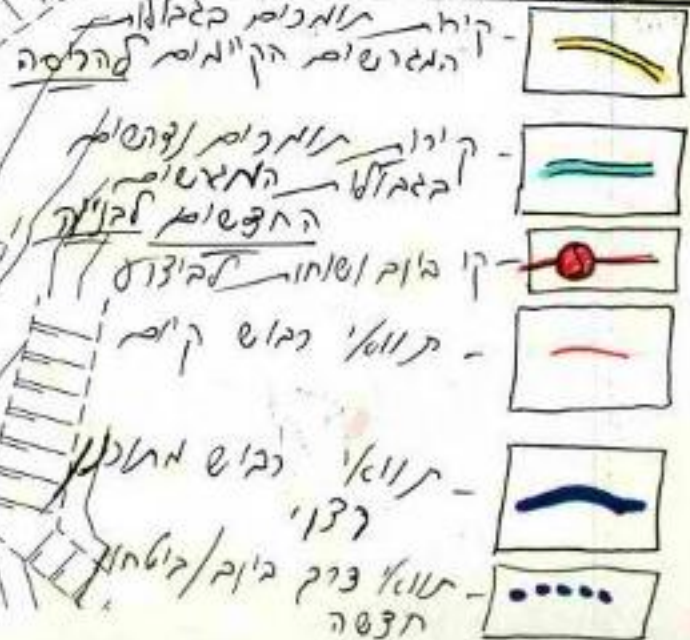 קירות תומכים בגבולות
המגרשים הקיימים להריסה
קירות תומכים נדרשים
בגבולות המגרשים
החדשים לבנייה
קו ביוב ושוחות לביצוע
תוואי כביש קיים
תוואי כביש מתוכנן
רצוי
תוואי דרך ביוב/ביטחון
חדשה